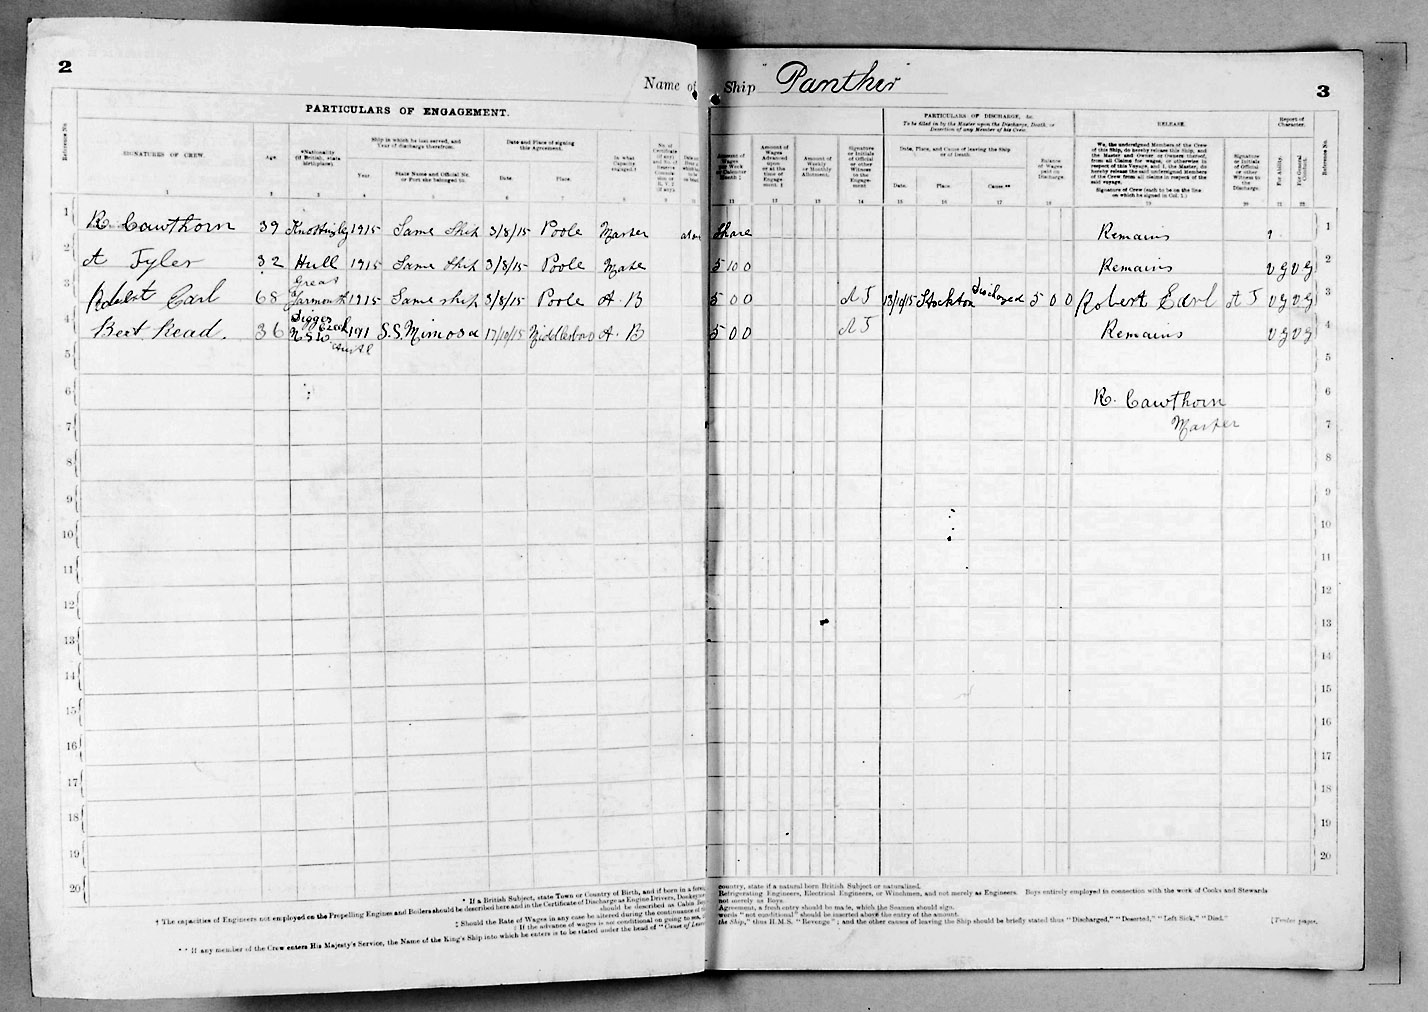 2
Name of Ship "Panther"
3
PARTICULARS OF ENGAGEMENT.
PARTICULARS OF DISCHARGE, &c.
To be filled in by the Master upon the Discharge, Death, or
Desertion of any Member of his Crew.
RELEASE.
Report of
Character.
Reference No.
SIGNATURES OF CREW.
Age.
*Nationality
(if British, state
birthplace).
Ship in which he last served, and
Year of discharge therefrom.
Year
State Name and Official No.
or Port she belonged to.
Date and Place of signing
this Agreement.
Date.
Place.
In what
Capacity
engaged.†
Amount of
Wages
per Week
or Calendar
Month ‡
Amount of
Wages
Advanced
upon
or at the
time of
Engage-
ment. ‡
Amount of
Weekly
or Monthly
Allotment.
Signature
or Initials
of Official
or other
Witness
to the
Engage-
ment
Date, Place, and Cause of leaving the Ship
or of Death.
Date.
Place.
Cause.**
Balance
of Wages
paid on
Discharge.
We, the undersigned Members of the Crew
of this Ship, do hereby release this Ship, and
the Master and Owner or Owners thereof,
from all Claims for wages, or otherwise in
respect of this Voyage, and I, the Master, do
hereby release the said undersigned Members
of the Crew from all claims in respect of the
said voyage.
Signature of Crew (each to be on the line
on which he signed in Col. 1.)
Signature
or Initials
of Official
or other
Witness to
the
Discharge.
For Ability.
For General
Conduct.
Reference No.
1 R. Cawthorn 39 Knottingley 1915 Same Ship 3/8/15 Poole Master Share Remains 1
2 A Tyler 32 Hull 1915 Same Ship 3/8/15 Poole Mate 5 10 0 Remains v g v g 2
3 Robert Earl 68 Great Yarmouth 1915 Same ship 3/8/15 Poole A. B 5 0 0 A J 13/10/15 Stockton Discharged 5 0 0 Robert Earl A J v g v g 3
4 Bert Read. 36 Digger Creek N.S.W. Austl 191 S.S. Mimosa 17/10/15 Middlesboro A. B 5 0 0 A J Remains v g v g 4
5 5
6 R. Cawthorn 6
7 Master 7
8 8
9 9
10 10
11 11
12 12
13 13
14 14
15 15
16 16
17 17
18 18
19 19
20 20
* If a British Subject, state Town or Country of Birth, and if born in a foreign country, state if a natural born British Subject or naturalized.
† The capacities of Engineers not employed on the Propelling Engines and Boilers should be described here and in the Certificate of Discharge as Engine Drivers, Donkeymen, Refrigerating Engineers, Electrical Engineers, or Winchmen, and not merely as Engineers. Boys entirely employed in connection with the work of Cooks and Stewards
should be described as Cabin Boys not merely as Boys.
‡ Should the Rate of Wages in any case be altered during the continuance of Agreement, a fresh entry should be made, which the Seamen should sign.
‡ If the advance of wages is not conditional on going to sea, words "not conditional" should be inserted above the entry of the amount.
** If any member of the Crew enters His Majesty's Service, the Name of the King's Ship into which he enters is to be stated under the head of "Cause of Leaving the Ship," thus H.M.S. "Revenge"; and the other causes of leaving the Ship should be briefly stated thus "Discharged," "Deserted," "Left Sick," "Died."
[Twelve pages.